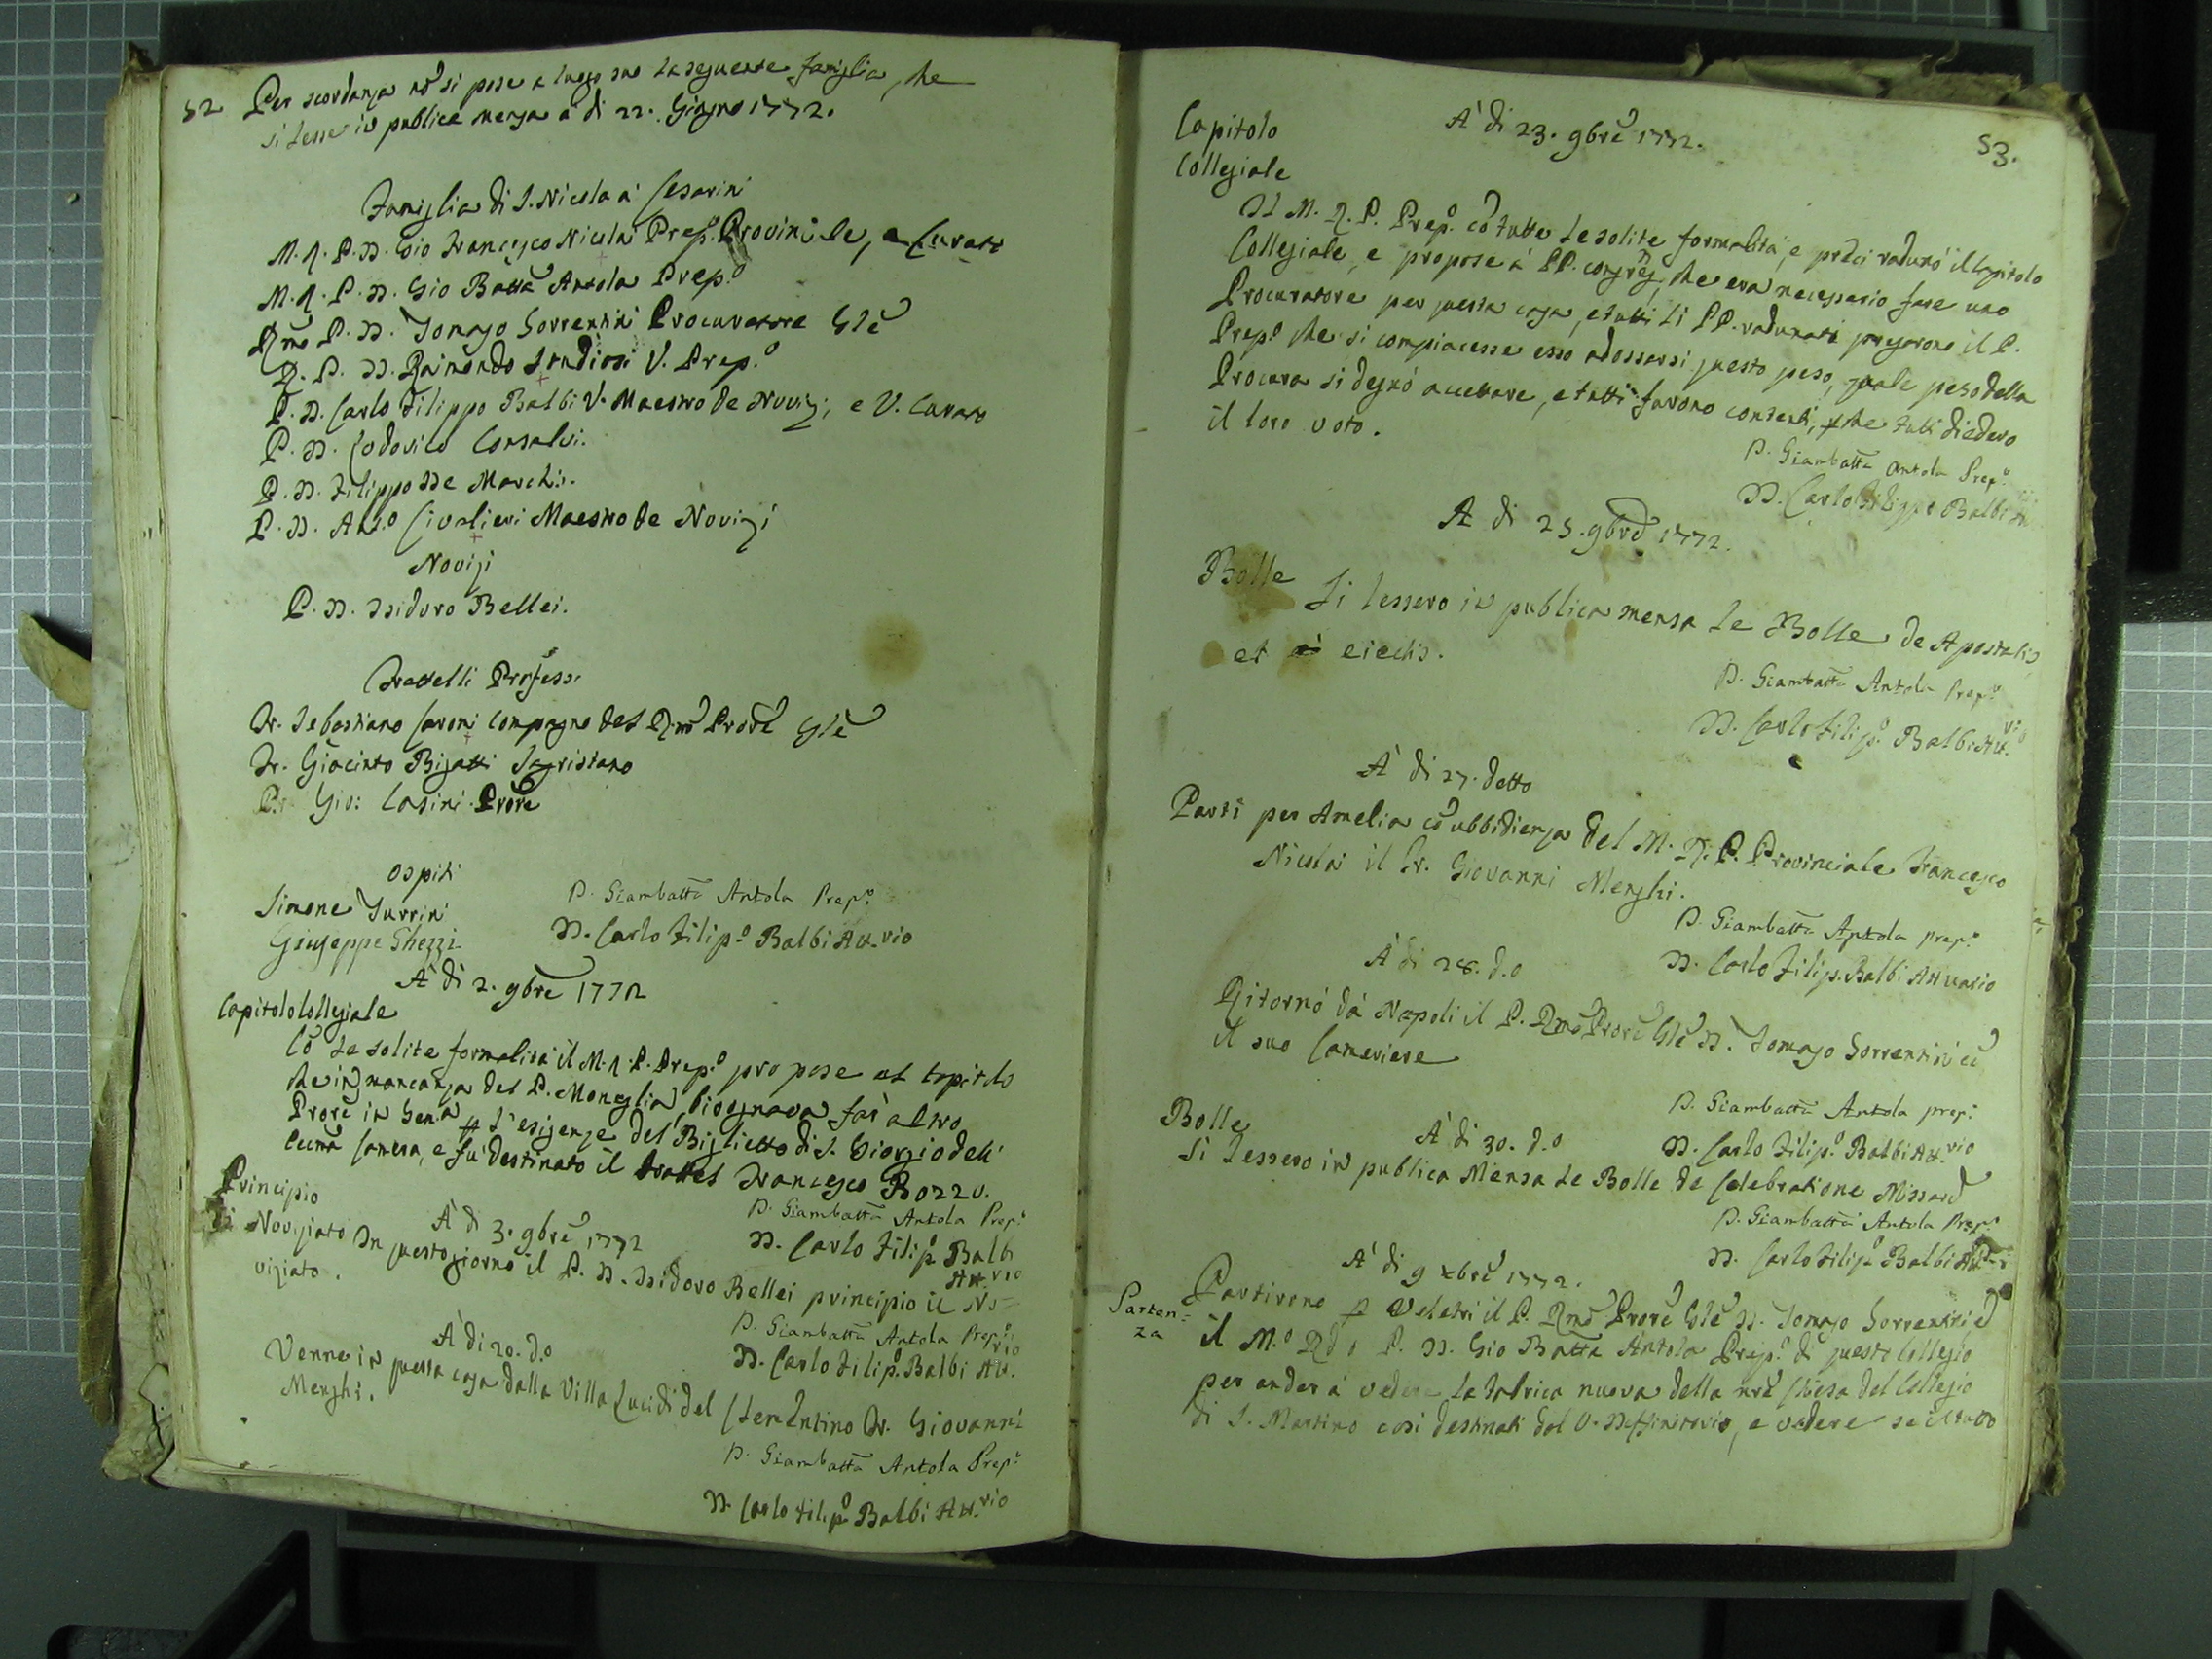 52 Per scordanza nõ si pose a luogo suo la seguente famiglia, che
si lesse in publica menza a di 22. Giugno 1772.
Famiglia di S. Nicola a' Cesarini
M. R. P. D. Gio Francesco Nicolai Prep. Provin le, e Curato
M. R. P. D. Gio Batta Antola Prep.o
Rmo P. D. Tomaso Sorrentini Procuratore Gle
R. P. D. Raimondo Studiosi V. Prep.o
P. D. Carlo Filippo Balbi V. Maestro de Novizj, e V. Curato
P. D. Lodovico Consalvi.
P. D. Filippo De Marchis.
P. D. Ant.o Civalieri Maestro de Novizi
Novizi
P. D. Isidoro Bellei.
Fratelli Professi
Fr. Sebastiano Cavoni Compagno del Rmo Prore Gle
Fr. Giacinto Bigatti Sagristano
Gio: Casini Prore
Ospiti
Simone Turrini
Giuseppe Ghezzi
P. Giambatta Antola Prep.o
D. Carlo Filip.o Balbi Att.vio
A' di 2. 9bre 1772
Capitolo Collegiale
Cõ le solite formalita il M. R. P. Prep.o propose al Capitolo
che in mancanza del P. Moneglia, bisognava far altro
Prore in Gen.a p l'esigenze del Biglietto di S. Giorgio dell'
Camera, e fù destinato il Frattel Francesco Bozzo.
P. Giambatta Antola Prep.o
D. Carlo Filip.o Balbi
Att.vio
Principio
di Noviziato
A' di 3. 9bre 1772
In questo giorno il P. D. Isidoro Bellei principio il No=
viziato.
P. Giambatta Antola Prep.o
D. Carlo Filip.o Balbi Att.vio
A' di 20. d.o
Venne in questa casa dalla Villa Lucidi del Clementino Fr. Giovanni
Menghi.
P. Giambatta Antola Prep.o
D. Carlo Filip.o Balbi Att.vio
53.
Capitolo
Collegiale
A' di 23. 9bre 1772.
Il M. R. P. Prep.o cõ tutte le solite formalita, e preci radunò il Capitolo
Collegiale, e propose a' PP. congreg, che era necessario fare uno
Procuratore per questa casa, e tutti li PP. radunati pregarono il P.
Prep.o che si compiacesse esso adossarsi questo peso, quale peso della
Procura si degnò accettare, e tutti furono contenti, che tutti diedero
il loro voto.
P. Giambatta Antola Prep.o
D. Carlo Filippo Balbi
A di 25. 9bre 1772.
Bolle
Si lessero in publica mensa le Bolle de Apostatis
et eiectis.
P. Giambatta Antola Prep.o
D. Carlo Filip.o Balbi Att.vio
A' di 27. detto
Partì per Amelia cõ ubbidienza del M. R. P. Provinciale Francesco
Nicolai il Fr. Giovanni Menghi.
P. Giambatta Antola prep.o
D. Carlo Filip. Balbi Attuario
A' di 28. d.o
Ritornò dà Napoli il P. Rmo Prore Gle D. Tomaso Sorrentini cõ
il suo Cameriere
P. Giambatta Antola prep.
D. Carlo Filip.o Balbi Att.vio
Bolle
A' di 30. d.o
Si lessero in publica Mensa le Bolle de Celebratione Missarũ
P. Giambatta Antola Prep.o
D. Carlo Filip.o Balbi
A' di 9 Xbre 1772.
Parten=
za
Partirono p Veletri il P. Rmo Prore Gle D. Tomaso Sorrentini ed
il M.o Rdo P. D. Gio Batta Antola Prep.o di questo Collegio
per andar à vedere la fabrica nuova della nra Chiesa del Collegio
di S. Martino cosi destinati dal V. Deffinitorio, e vedere se il tutto